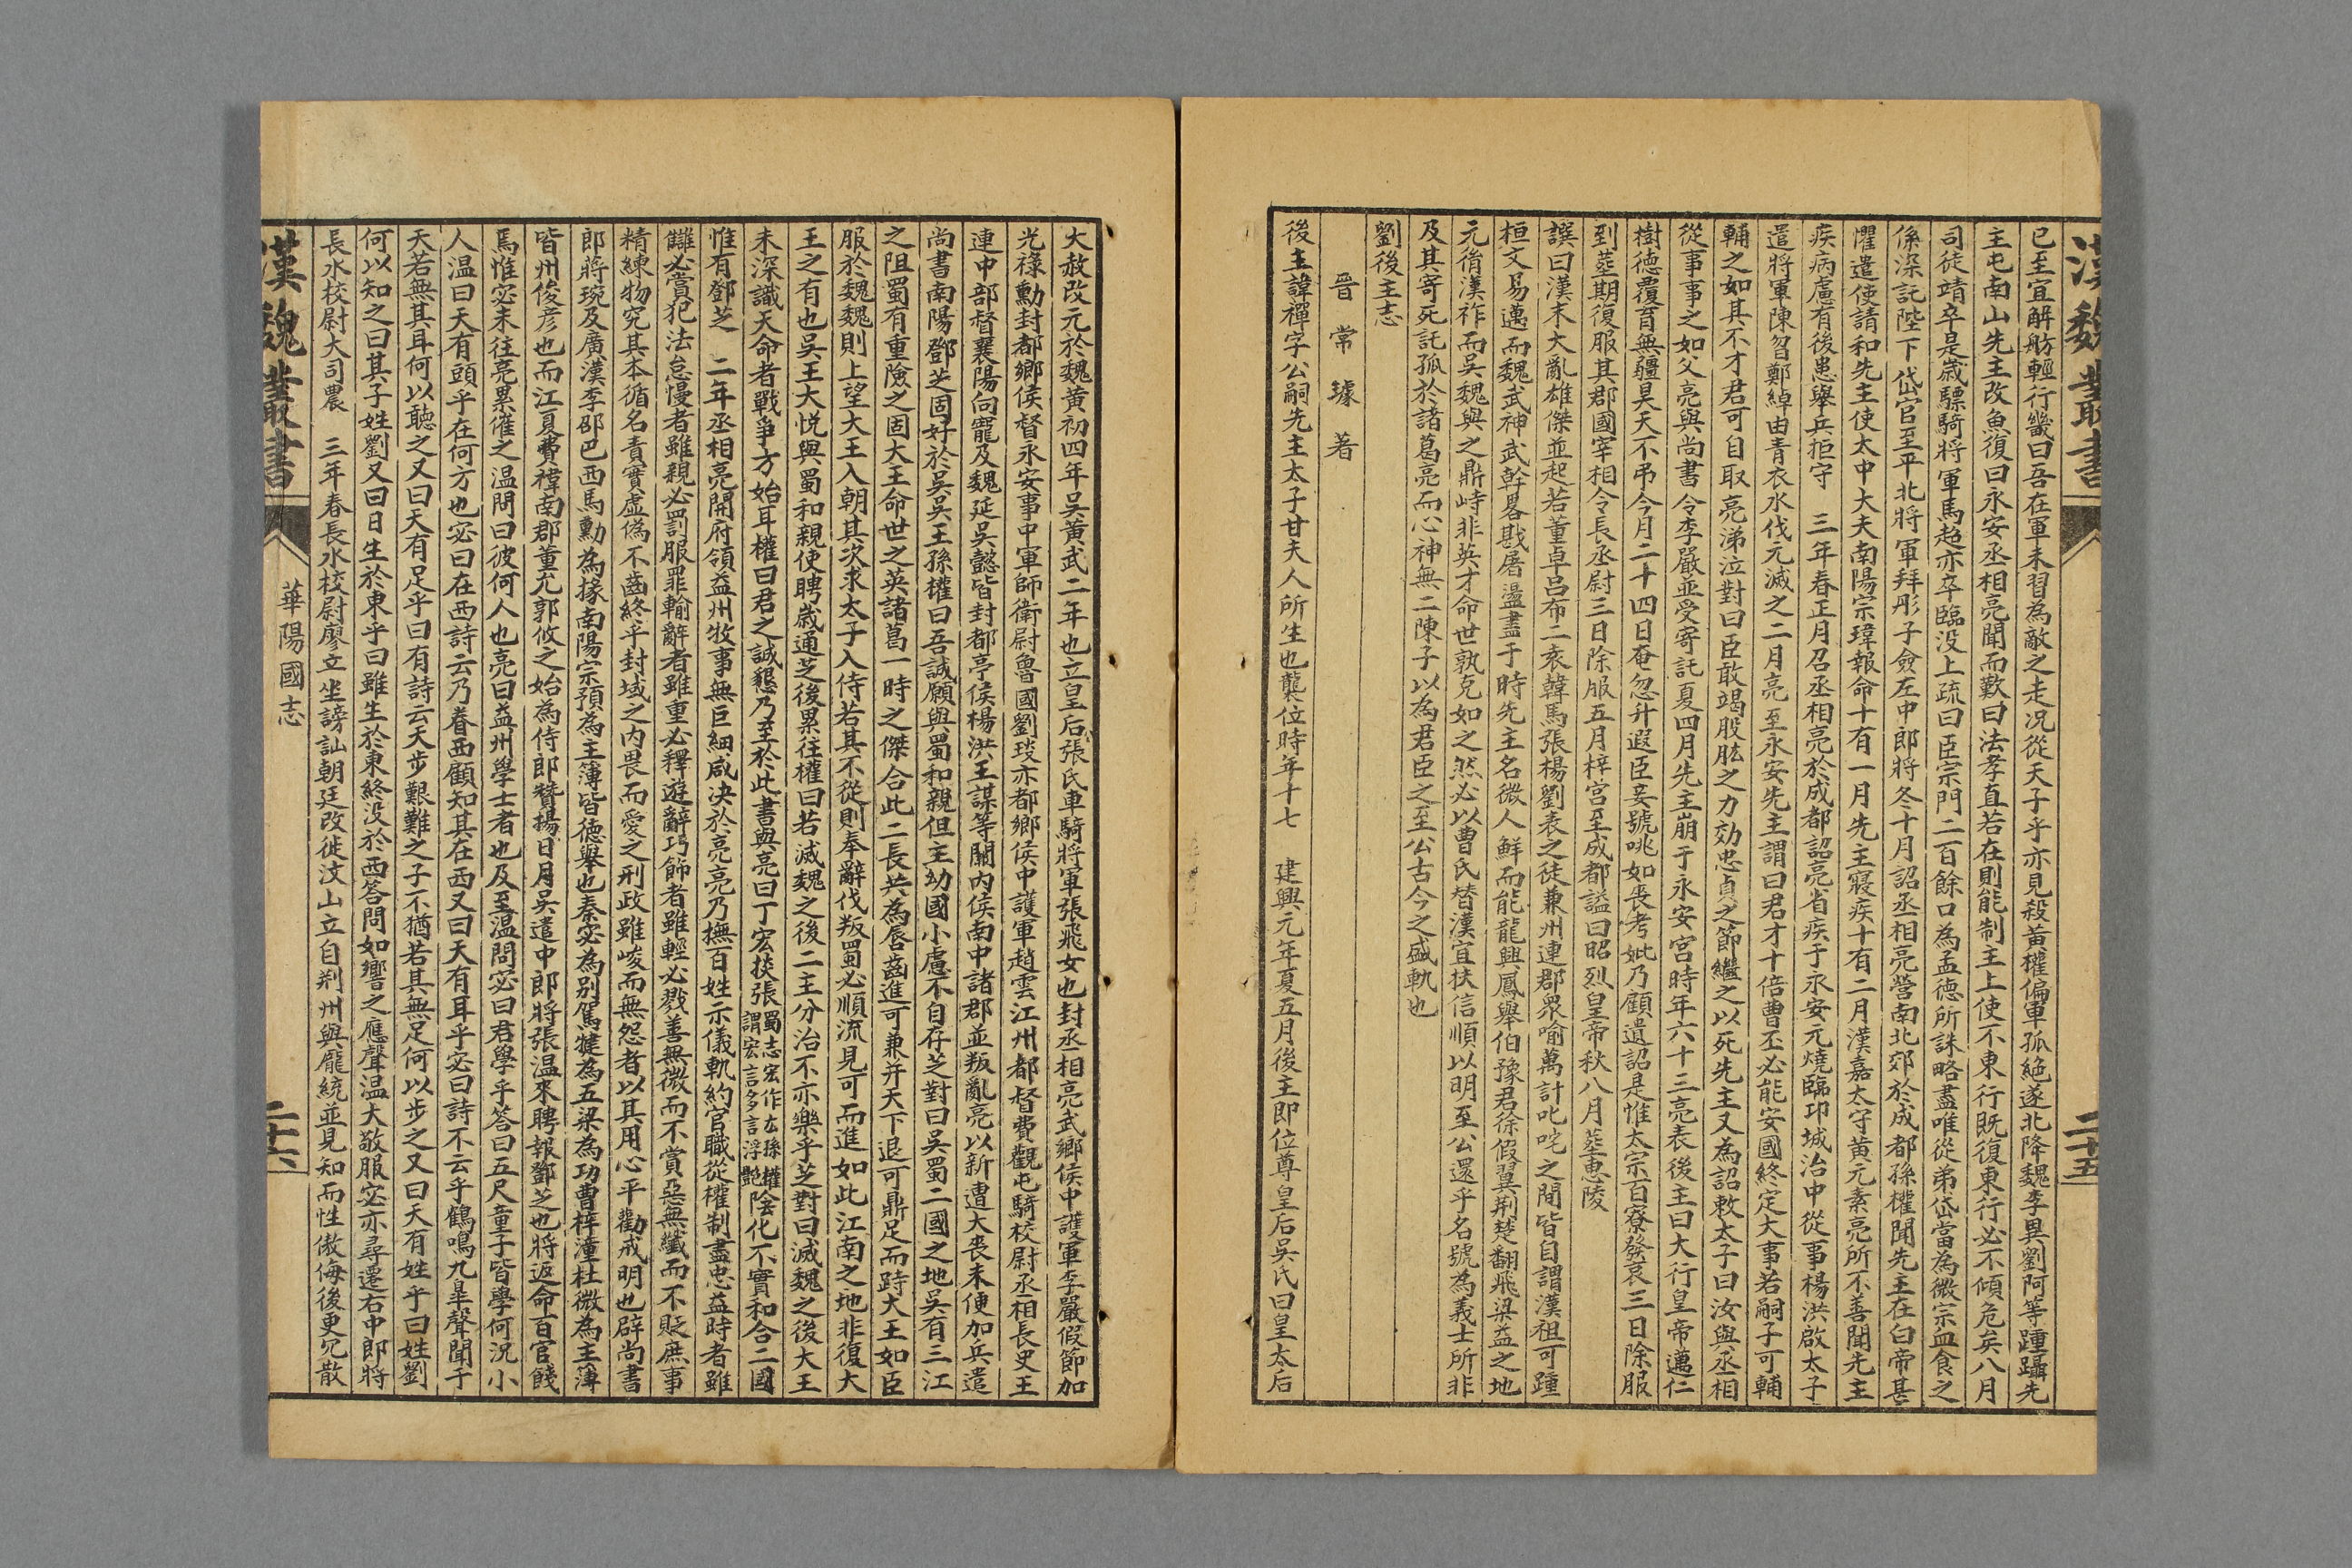 漢魏叢書
二十五
已至宜解舫輕行畿曰吾在軍未習為敵之走况從天子乎亦見殺黃權偏軍孤絶遂北降魏李異劉阿等踵躡先
主屯南山先主改魚復曰永安丞相亮聞而歎曰法孝直若在則能制主上使不東行既復東行必不傾危矣八月
司徒靖卒是歲驃騎將軍馬超亦卒臨没上疏曰臣宗門二百餘口為孟德所誅略盡唯從弟岱當為微宗血食之
係深託陛下岱官至平北將軍拜彤子僉左中郎將冬十月詔丞相亮營南北郊於成都孫權聞先主在白帝甚
懼遣使請和先主使太中大夫南陽宗瑋報命十有一月先主寢疾十有二月漢嘉太守黃元素亮所不善聞先主
疾病慮有後患舉兵拒守　三年春正月召丞相亮於成都詔亮省疾于永安元燒臨邛城治中從事楊洪啟太子
遣將軍陳曶鄭綽由青衣水伐元滅之二月亮至永安先主謂曰君才十倍曹丕必能安國終定大事若嗣子可輔
輔之如其不才君可自取亮涕泣對曰臣敢竭股肱之力効忠貞之節繼之以死先主又為詔敕太子曰汝與丞相
從事事之如父亮與尚書令李嚴並受寄託夏四月先主崩于永安宮時年六十三亮表後主曰大行皇帝邁仁
樹德覆育無疆昊天不弔今月二十四日奄忽升遐臣妾號咷如喪考妣乃顧遺詔是惟太宗百寮發哀三日除服
到葬期復服其郡國宰相令長丞尉三日除服五月梓宮至成都謚曰昭烈皇帝秋八月葬惠陵
譔曰漢末大亂雄傑並起若董卓呂布二袁韓馬張楊劉表之徒兼州連郡衆喻萬計叱咤之間皆自謂漢祖可踵
桓文易邁而魏武神武幹畧戡屠盪盡于時先主名微人鮮而能龍興鳳舉伯豫君徐假翼荆楚翻飛梁益之地
元胤漢祚而吳魏與之鼎峙非英才命世孰克如之然必以曹氏替漢宜扶信順以明至公還乎名號為義士所非
及其寄死託孤於諸葛亮而心神無二陳子以為君臣之至公古今之盛軌也
劉後主志
晉　常　璩　著
後主諱禪字公嗣先主太子甘夫人所生也襲位時年十七　建興元年夏五月後主即位尊皇后吳氏曰皇太后
大赦改元於魏黃初四年吳黃武二年也立皇后張氏車騎將軍張飛女也封丞相亮武鄉侯中護軍李嚴假節加
光祿勳封都鄉侯督永安事中軍師衛尉魯國劉琰亦都鄉侯中護軍趙雲江州都督費觀屯騎校尉丞相長史王
連中部督襄陽向寵及魏延吳懿皆封都亭侯楊洪王謀等關內侯南中諸郡並叛亂亮以新遭大喪未便加兵遣
尚書南陽鄧芝固好於吳吳王孫權曰吾誠願與蜀和親但主幼國小慮不自存芝對曰吳蜀二國之地吳有三江
之阻蜀有重險之固大王命世之英諸葛一時之傑合此二長共為唇齒進可兼并天下退可鼎足而跱大王如臣
服於魏魏則上望大王入朝其次求太子入侍若其不從則奉辭伐叛蜀必順流見可而進如此江南之地非復大
王之有也吳王大悅與蜀和親使聘歲通芝後累往權曰若滅魏之後二主分治不亦樂乎芝對曰滅魏之後大王
未深識天命者戰爭方始耳權曰君之誠懇乃至於此書與亮曰丁宏掞張蜀志宏作厷孫權謂宏言多言浮艷陰化不實和合二國
惟有鄧芝　二年丞相亮開府領益州牧事無巨細咸决於亮亮乃撫百姓示儀軌約官職從權制盡忠益時者雖
讎必賞犯法怠慢者雖親必罰服罪輸辭者雖重必釋遊辭巧飾者雖輕必戮善無微而不賞惡無纖而不貶庶事
精練物究其本循名責實虛偽不齒終乎封域之內畏而愛之刑政雖峻而無怨者以其用心平勸戒明也辟尚書
郎蔣琬及廣漢李邵巴西馬勳為掾南陽宗預為主簿皆德舉也秦宓為別駕犍為五梁為功曹梓潼杜微為主簿
皆州俊彥也而江夏費禕南郡董允郭攸之始為侍郎贊揚日月吳遣中郎將張温來聘報鄧芝也將返命百官餞
焉惟宓未往亮累催之温問曰彼何人也亮曰益州學士者也及至温問宓曰君學乎答曰五尺童子皆學何況小
人温曰天有頭乎在何方也宓曰在西詩云乃眷西顧知其在西又曰天有耳乎宓曰詩不云乎鶴鳴九皐聲聞于
天若無其耳何以聽之又曰天有足乎曰有詩云天步艱難之子不猶若其無足何以步之又曰天有姓乎曰姓劉
何以知之曰其子姓劉又曰日生於東乎曰雖生於東終没於西答問如響之應聲温大敬服宓亦尋遷右中郎將
長水校尉大司農　三年春長水校尉廖立坐謗訕朝廷改徙汶山立自荆州與龐統並見知而性傲侮後更宂散
漢魏叢書
華陽國志
二十六